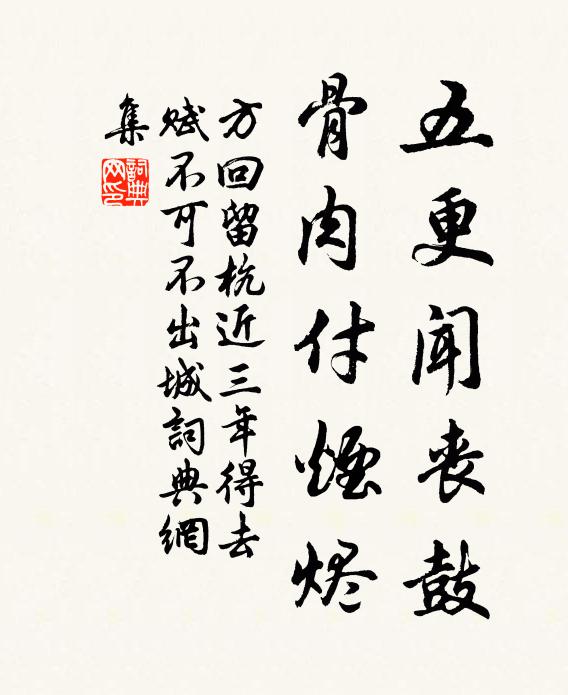 五更闻丧鼓
骨肉付煙烬
方回留杭近三年得去
赋不可不出城詞典網
集
詞典网印